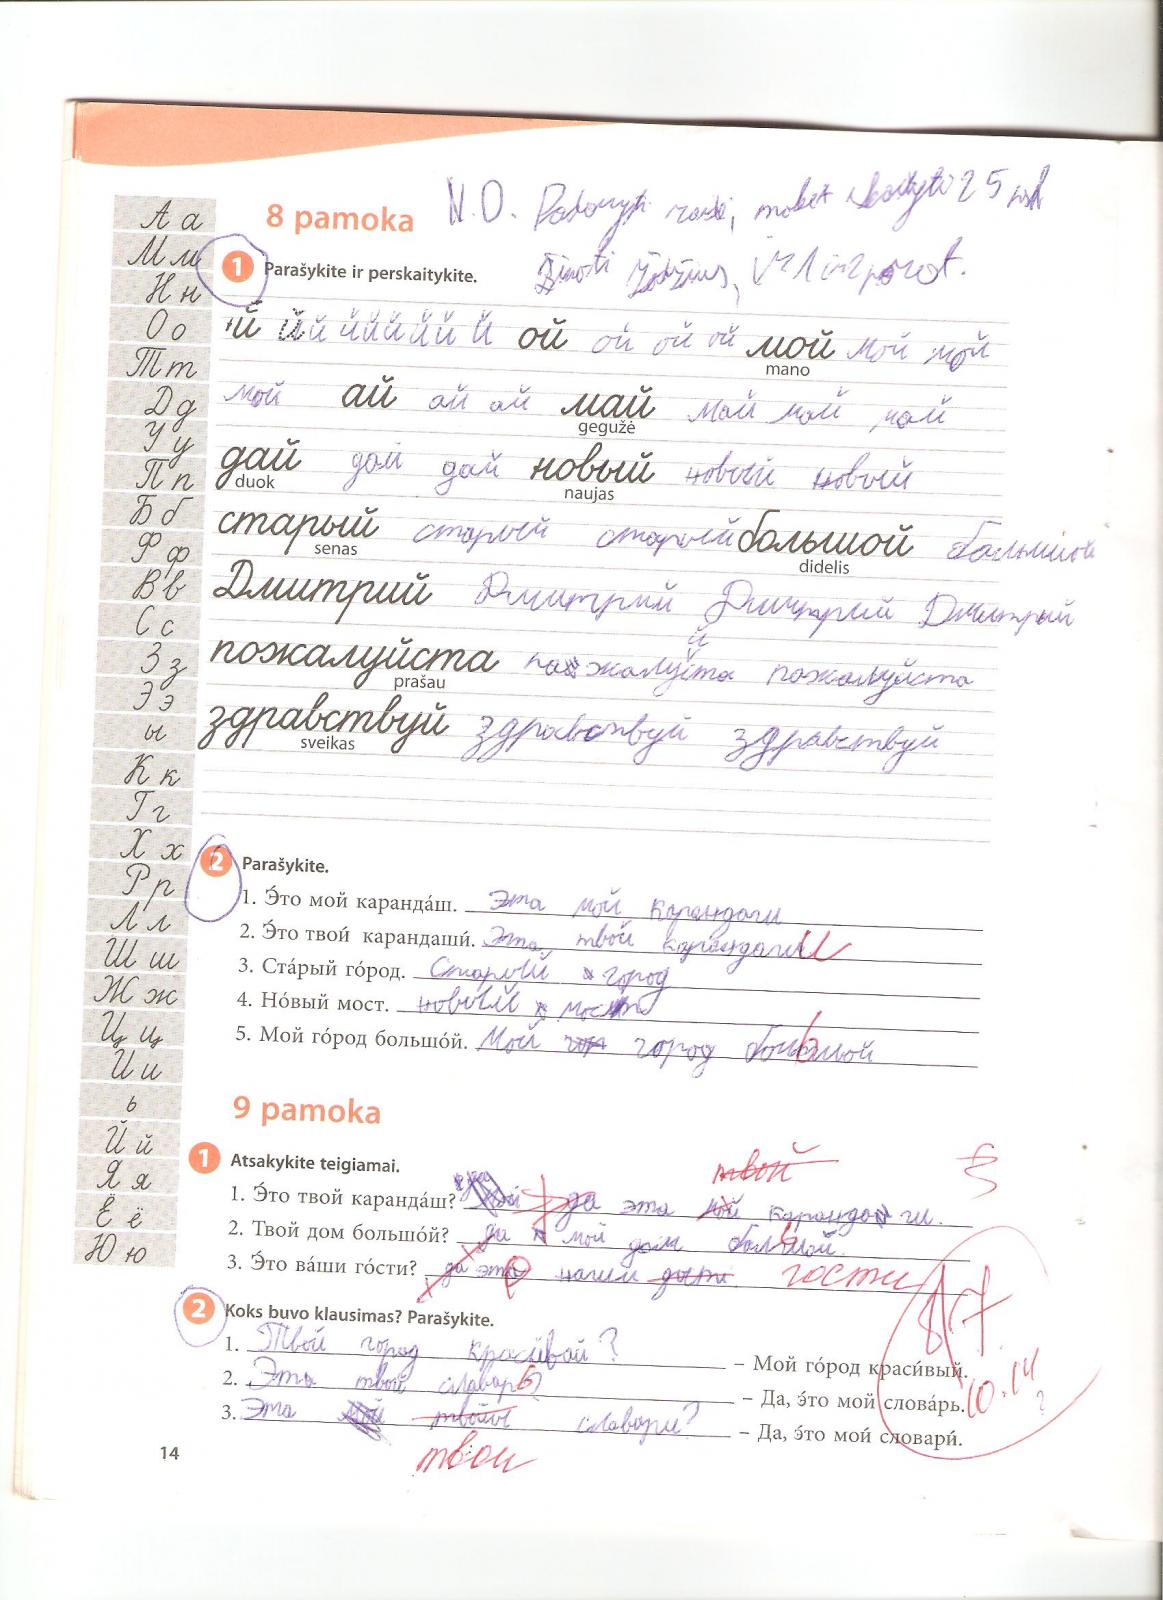 А а
М м
Н н
О о
Т т
Д д
У у
П п
Б б
Ф ф
В в
С с
З з
Э э
ы
К к
Г г
Х х
Р р
Л л
Ш ш
Ж ж
Ц ц
И и
ь
Й й
Я я
Ё ё
Ю ю
8 pamoka N.D.
1 Parašykite ir perskaitykite.
й й й й й й й й й ой ой ой ой мой мой мой
mano
мой ай ай ай май май май май
gegužė
дай дай дай новый новый новый
duok naujas
старый старый старый большой большой
senas didelis
Дмитрий Дмитрий Дмитрий Дмитрый
пожалуйста пожалуйста
prašau
здравствуй здравствуй здравствуй
sveikas
2 Parašykite.
1. Э́то мой каранда́ш. Эта мой карандаш
2. Э́то твои́ карандаши́. Эта твой карандаши
3. Ста́рый го́род. Старый город
4. Но́вый мост. новый мост
5. Мой го́род большо́й. Мой город большой
9 pamoka
1 Atsakykite teigiamai.
твой
1. Э́то твой каранда́ш? да эта мой карандаш.
2. Твой дом большо́й? да мой дом большой.
3. Э́то ва́ши го́сти? да это наши гости
2 Koks buvo klausimas? Parašykite.
1. Твой город красивай? – Мой го́род краси́вый.
2. Эта твой словарь – Да, э́то мой слова́рь. 10.14
3. Эта словари? – Да, э́то мои́ словари́.
твои
14